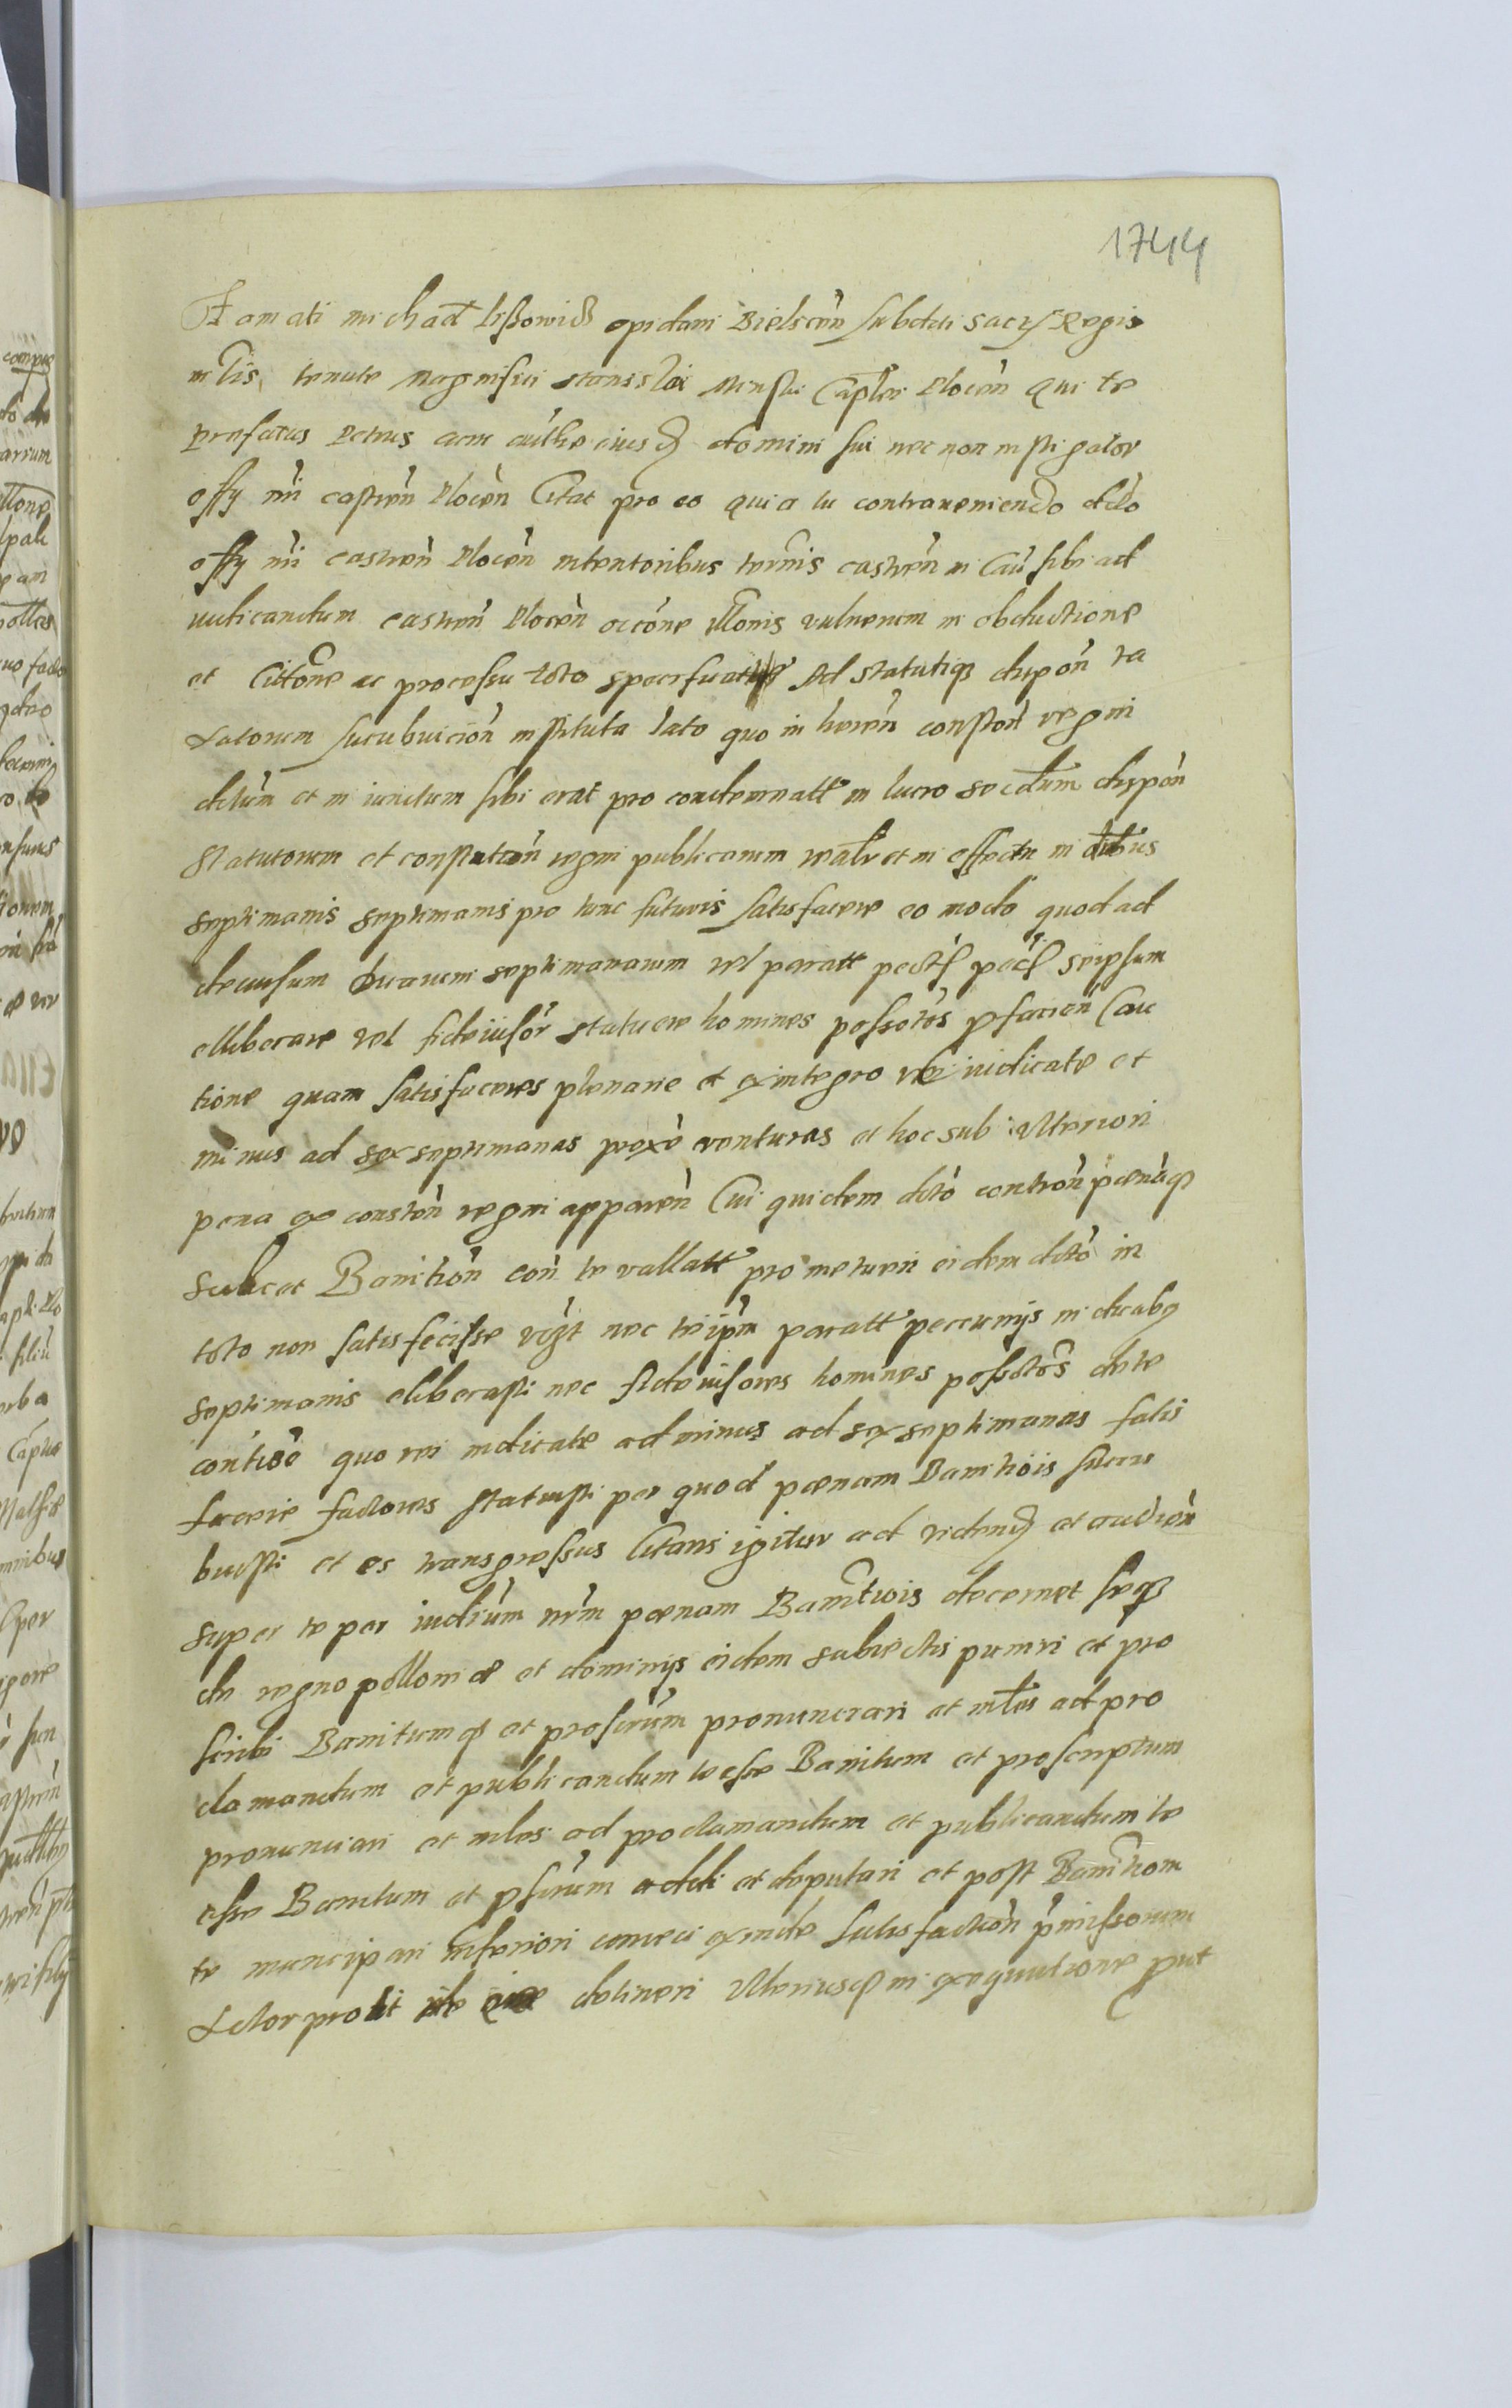 1744
Famati michael lissowicz opidani Bielscen subditi sacrae Regie
mtis, tenute magnifici Stanislai Minski Capter Plocen qui te
prefatus Petrus cum authte eiusd domini sui nec non instigator
offy nri castren Plocen Citat pro eo quia tu contraveniendo dcto
offy nri castren Plocen intentoribus termis castren in Cau sibi ad
iudicandum castren Plocen occone vulnerum in obductione
et Cittone ac processu toto specificat Ad statutiq dispon ra
Latorum instituta lato quo in heren conston regni
dictum et in iunctum sibi erat pro condemnatt in lucro secdum dispon
statutorum et constution regni publicarum realr et in effectu in duabus
septimanis septimanis pro tunc futuris satisfacere eo modo quod ad
decursum duarum septimanarum vel paratt pectis pecs seipsum
elliberare vel fideiussor statuere homines possotos pfacien Cau
tione quam satisfaceres plenarie et ex integro rei iudicate et
minus ad sex septimanas proxe venturas et hoc sub ulteriori
pena ex conston regni apparen Cui quidem dcto contron penaq
subest Banition con te vallatt pro meruri eidem dcto in
toto non satisfecisse nec teipm paratt peccunijs in duabq
septimanis eliberasti nec fideiusores homines possotos de te
contiõe quo rei iudicate ad minus ad sex septimanas satis
facere factores statuisti per quod paenam Banitiois succu
buisti et es transgressus Citaris igitur ad vidend et audien
super te per iudium nrm paenam Banitiois decernet seq
de regno polloniae et dominijs eidem subiectis puniri et pro
scribi Banitumq et proscrum pronunciari et mles ad pro
clamandum et publicandum te esse Banitum et proscriptum
pronunciari et mles ad proclamandum et publicandum te
esse Banitum et pscrum addi et deputari et post Banitiom
te muncipari inferiori conveci exinde satisfaction pmissorum
Lator detineri Ulteriusq in exequutione put